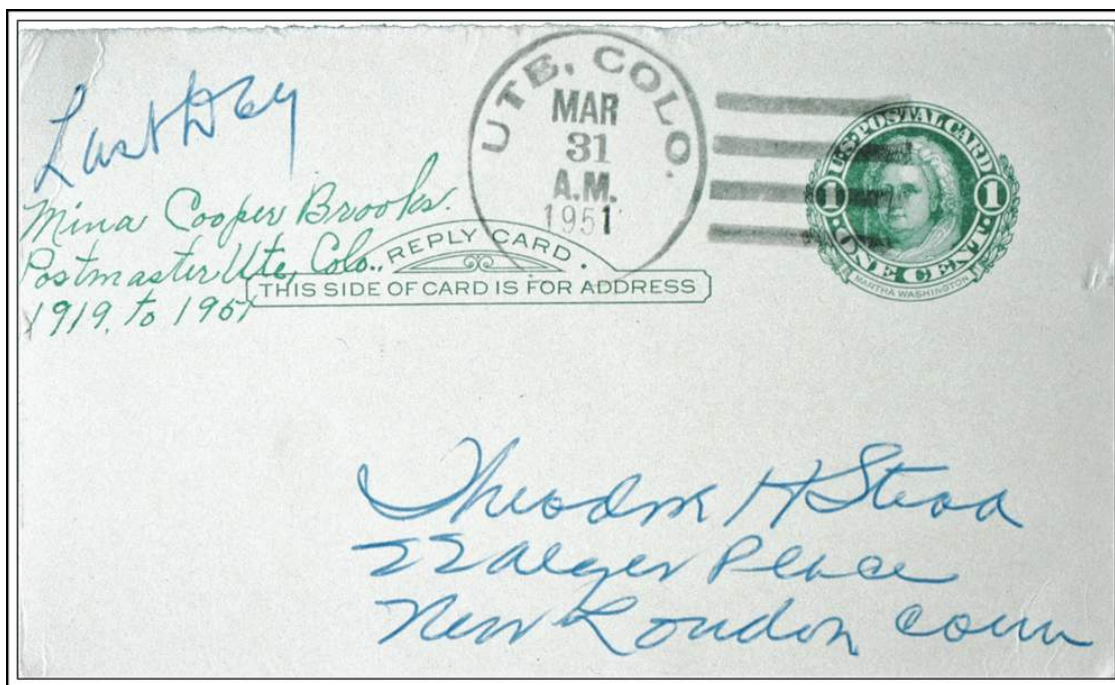 Last Day
Mina Cooper Brooks.
Postmaster Ute, Colo.,
1919, to 1951
UTE, COLO.
MAR
31
A.M.
1951
REPLY CARD.
THIS SIDE OF CARD IS FOR ADDRESS
U·S·POSTAL CARD
1 1
·ONE CENT·
MARTHA WASHINGTON
Theodore H Stead
22 Alger Place
New London Conn